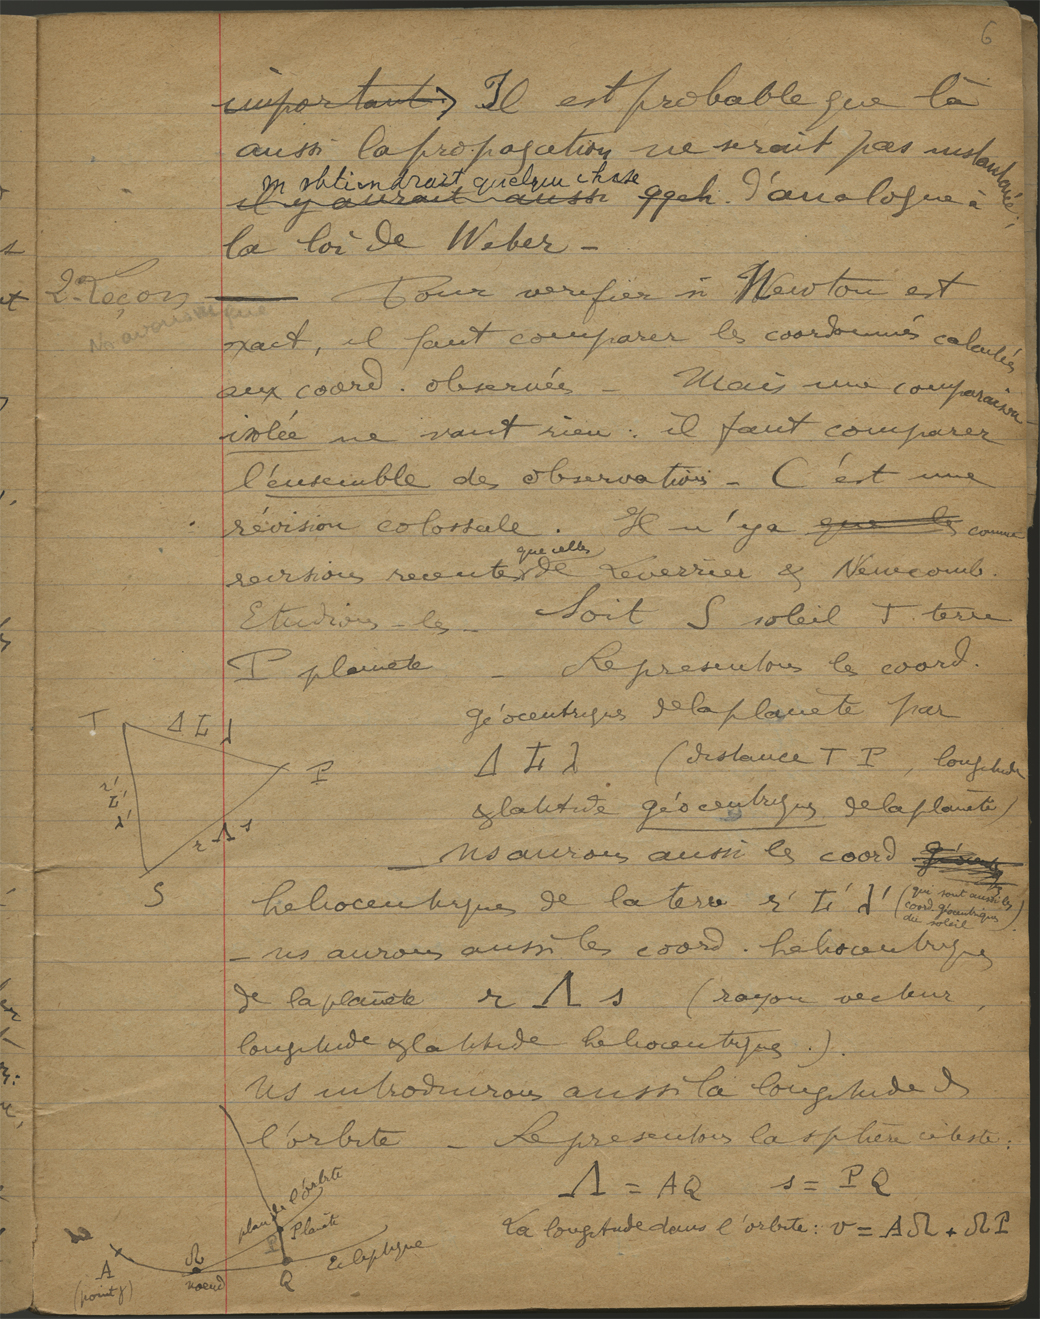 6
importante, Il est probable que là
aussi la propagation ne serait pas instantanée;
on obtiendrait quelque chose
il y aurait aussi qqch. d'analogue à
la loi de Weber –
2e Leçon
Pour verifier si Newton est
exact, il faut comparer les coordonnées calculées
aux coord. observées – Mais une comparaison
isolée ne vaut rien : il faut comparer
l'ensemble des observations – C'est une
révision colossale. Il n'y a que les comme
que celles
revisions recentes de Leverrier & Newcomb.
Etudions-les – Soit S soleil T terre
P planete – Representons les coord.
géocentriques de la planete par
Δ L λ (distance T P, longitude
& latitude géocentriques de la planete)
– Ns aurons aussi les coord
heliocentriques de la terre r' L' λ' (qui sont aussi les
coord. géocentriques
du soleil)
– ns aurons aussi les coord. heliocentriques
de la planete r Λ s (rayon vecteur,
longitude & latitude heliocentriques.).
Ns introduirons aussi la longitude ds
l'orbite – Representons la sphère céleste:
Λ = AQ s = PQ
La longitude dans l'orbite: v = AΩ + ΩP
T
Δ L λ
P
r' L' λ'
r Λ s
S
plan de l'orbite
Planète
P
Ecliptique
Ω
noeud
Q
A
(point γ)